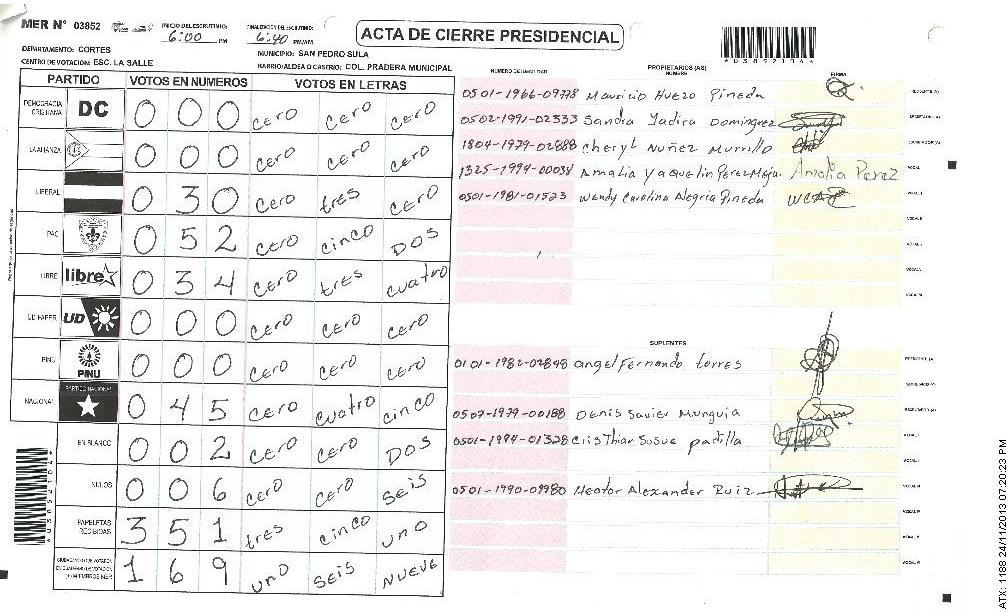 MER N° 03852
INICIO DEL ESCRUTINIO: 6:00 PM
FINALIZACIÓN DEL ESCRUTINIO: 6:40 PM/AM
ACTA DE CIERRE PRESIDENCIAL
DEPARTAMENTO: CORTES
MUNICIPIO: SAN PEDRO SULA
CENTRO DE VOTACION: ESC. LA SALLE
BARRIO/ALDEA O CASERIO: COL. PRADERA MUNICIPAL
PARTIDO VOTOS EN NUMEROS VOTOS EN LETRAS
DEMOCRACIA CRISTIANA DC 0 0 0 cero cero cero
LA ALIANZA 0 0 0 cero cero cero
LIBERAL 0 3 0 cero tres cero
PAC 0 5 2 cero cinco DOS
LIBRE libre 0 3 4 cero tres cuatro
UD-FAPER UD 0 0 0 cero cero cero
PINU PINU 0 0 0 cero cero cero
NACIONAL PARTIDO NACIONAL 0 4 5 cero cuatro cinco
EN BLANCO 0 0 2 cero cero DOS
NULOS 0 0 6 cero cero seis
PAPELETAS RECIBIDAS 3 5 1 tres cinco uno
1 6 9 uno seis nueve
NUMERO DE IDENTIDAD PROPIETARIOS (AS) NOMBRE FIRMA
0501-1966-09778 Mauricio Huezo Pineda
0502-1991-02333 Sandra Yadira Dominguez
1804-1979-02888 Cheryl Nuñez Murrillo
1325-1994-00038 Amalia Yaquelin Perez Mejia Amalia Perez
0501-1981-01523 Wendy Carolina Alegria Pineda
SUPLENTES
0101-1982-02848 angel Fernando torres
0507-1979-00188 Denis Javier Munguia
0501-1994-01328 Cristhian Josue padilla
0501-1990-09980 Hector Alexander Ruiz
ATX: 1188 24/11/2013 07:20:23 PM